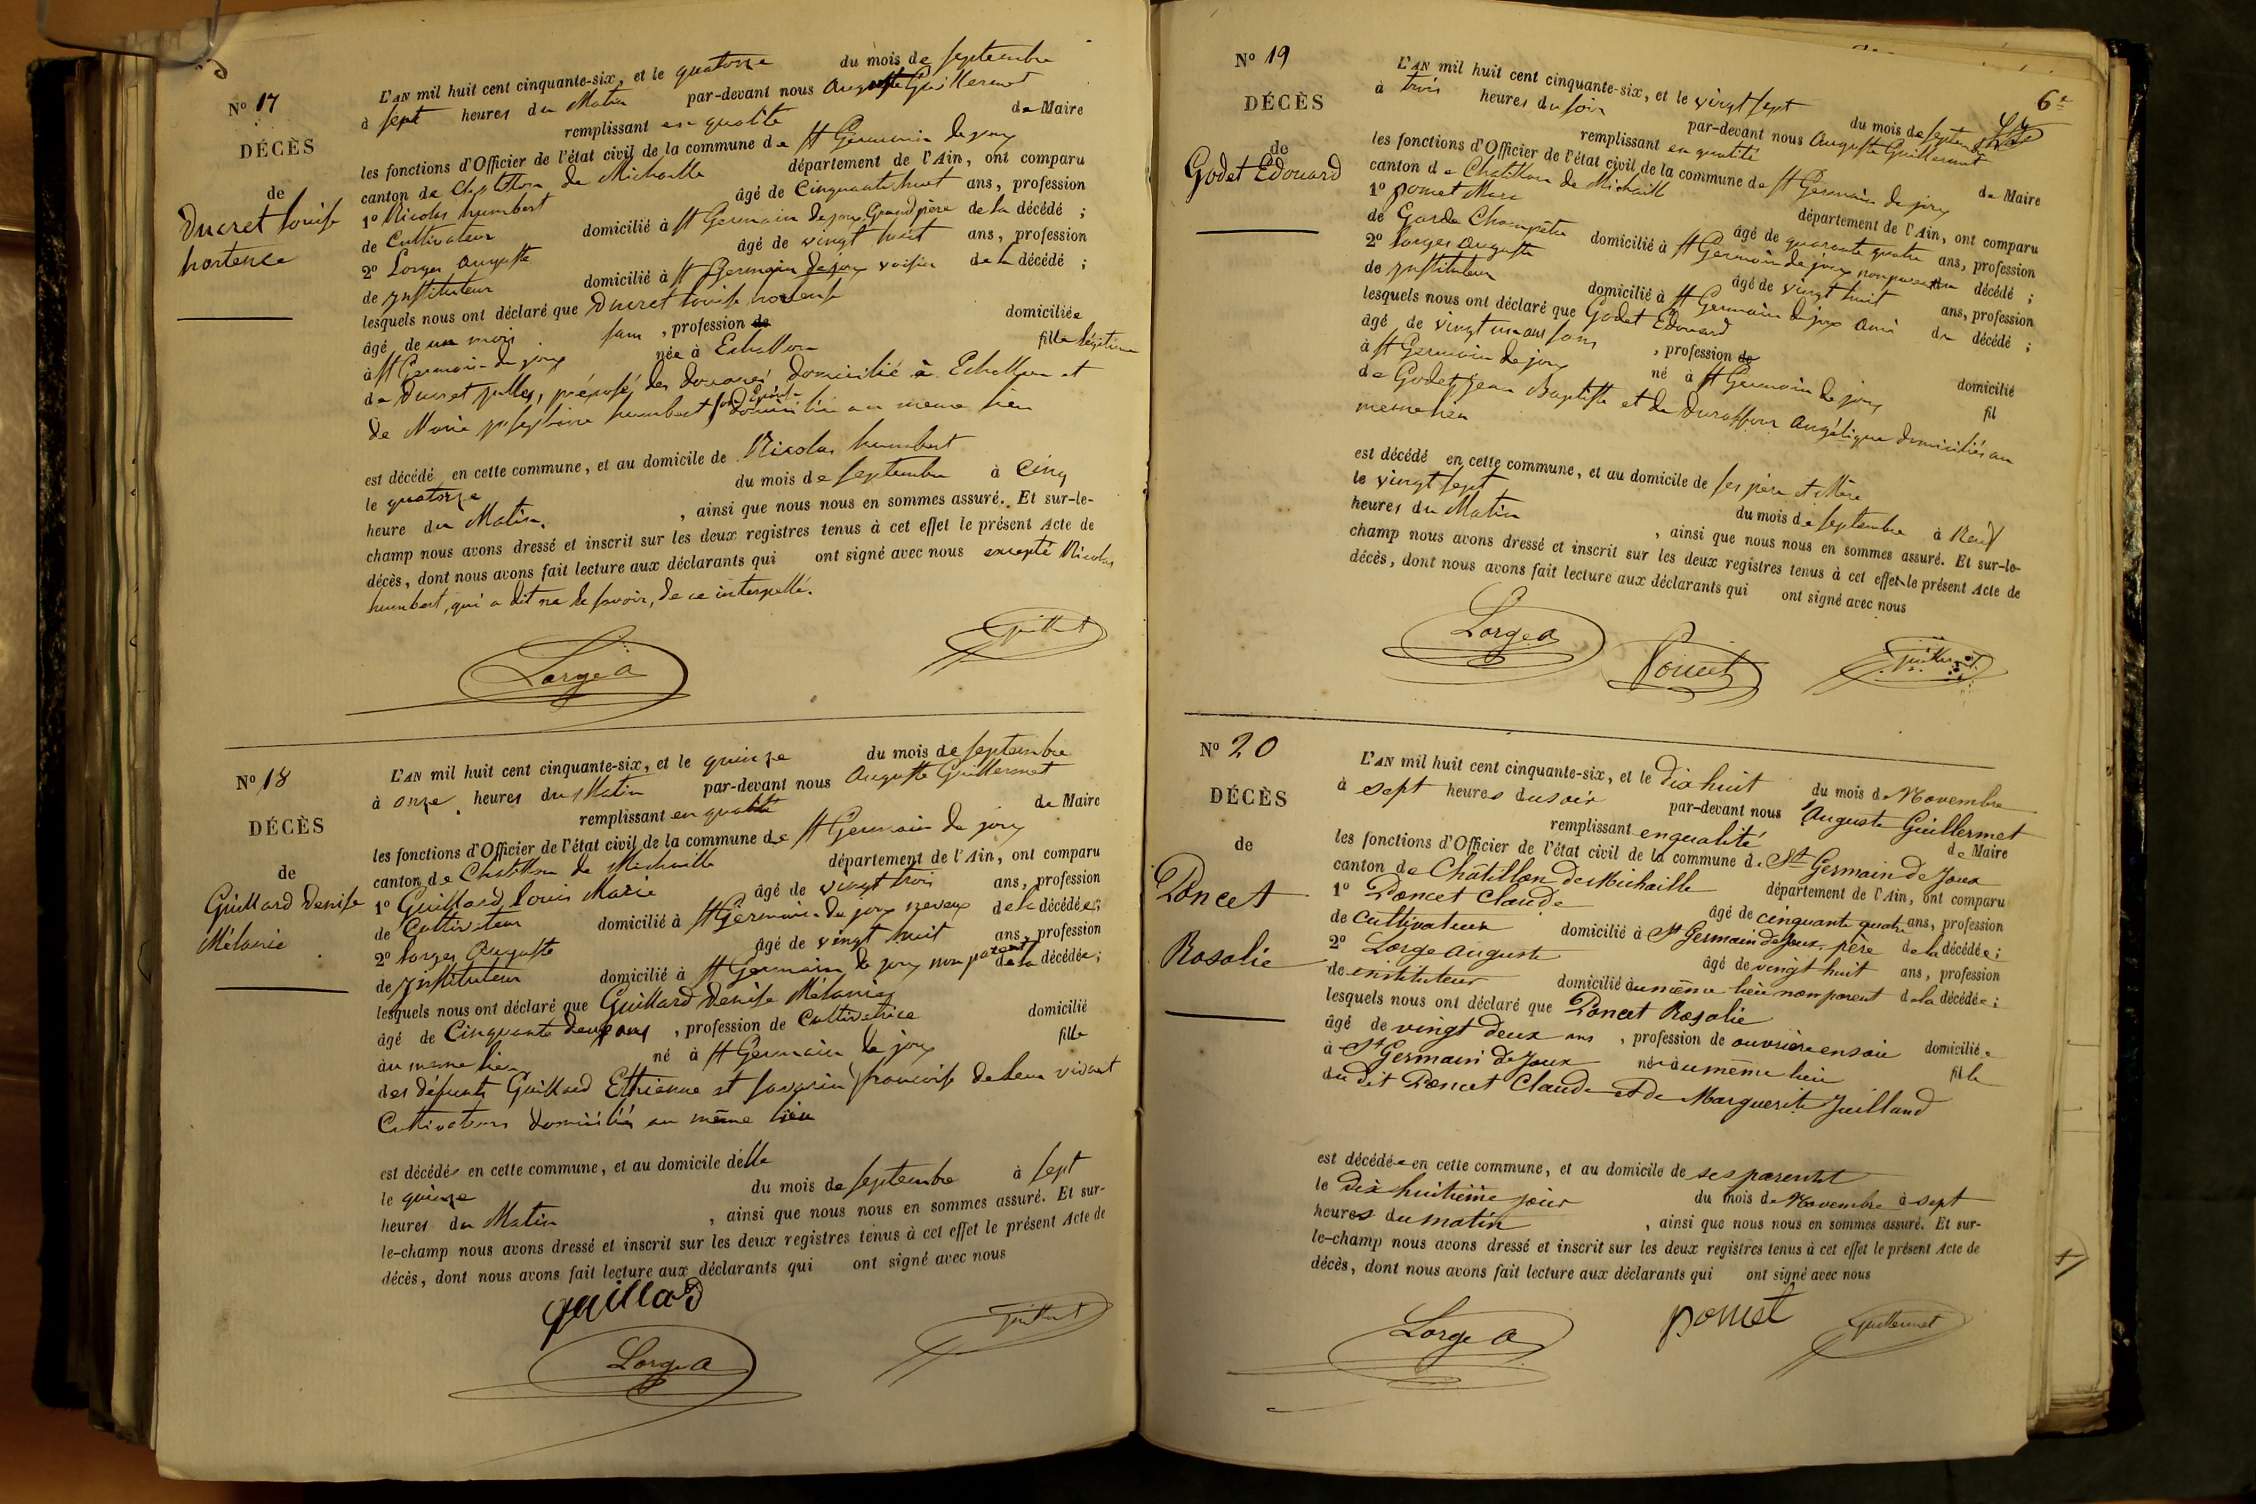 N° 17
DÉCÈS
de
Ducret Louise
hortence
L'AN mil huit cent cinquante-six, et le quatorze du mois de septembre
à sept heures du Matin par-devant nous Auguste Guillermet
remplissant en qualité de Maire
les fonctions d'Officier de l'état civil de la commune de St Germain de joux
canton de Chatillon de Michaille département de l'Ain, ont comparu
1° Nicolas humbert âgé de Cinquante huit ans, profession
de Cultivateur domicilié à St Germain de joux Grand père de la décédé ;
2° Lorge Auguste âgé de vingt huit ans, profession
de instituteur domicilié à St Germain de joux voisin de la décédé ;
lesquels nous ont déclaré que Ducret Louise hortense
âgé de un mois sans , profession de domiciliée
à St Germain de joux née à Echallon fille légitime
de Ducret jules, préposé des douanes domicilié à Echallon et
de Marie josephine humbert son épouse domiciliée au même lieu
est décédé en cette commune, et au domicile de Nicolas humbert
le quatorze du mois de septembre à cinq
heure du Matin. , ainsi que nous nous en sommes assuré. Et sur-le-
champ nous avons dressé et inscrit sur les deux registres tenus à cet effet le présent Acte de
décès, dont nous avons fait lecture aux déclarants qui ont signé avec nous excepté Nicolas
humbert, qui a dit ne le savoir, de ce interpellé.
Lorge A Guillermet
N° 18
DÉCÈS
de
Guillard Denise
Mélanie
L'AN mil huit cent cinquante-six, et le quinze du mois de septembre
à onze heures du Matin par-devant nous Auguste Guillermet
remplissant en qualité de Maire
les fonctions d'Officier de l'état civil de la commune de St Germain de joux
canton de Chatillon de Michaille département de l'Ain, ont comparu
1° Guillard Louis Marie âgé de vingt trois ans, profession
de Cultivateur domicilié à St Germain de joux neveux de la décédée ;
2° Lorge Auguste âgé de vingt huit ans, profession
de instituteur domicilié à St Germain de joux non parent de la décédée ;
lesquels nous ont déclaré que Guillard Denise Mélanie
âgé de Cinquante deux ans , profession de Cultivatrice domicilié
au même lieu né à St Germain de joux fille
des défunts Guillard Ethienne et Savarin françoise de leur vivant
Cultivateurs domiciliés au même lieu
est décédée en cette commune, et au domicile d'elle
le quinze du mois de septembre à sept
heures du Matin , ainsi que nous nous en sommes assuré. Et sur-
le-champ nous avons dressé et inscrit sur les deux registres tenus à cet effet le présent Acte de
décès, dont nous avons fait lecture aux déclarants qui ont signé avec nous
guillard
Lorge A Guillermet
6e
N° 19
DÉCÈS
de
Godet Edouard
L'AN mil huit cent cinquante-six, et le vingt sept du mois de septembre
à trois heures du soir par-devant nous Auguste Guillermet
remplissant en qualité de Maire
les fonctions d'Officier de l'état civil de la commune de St Germain de joux
canton de Chatillon de Michaille département de l'Ain, ont comparu
1° poncet Marc âgé de quarante quatre ans, profession
de Garde Champêtre domicilié à St Germain de joux non parent du décédé ;
2° Lorge Auguste âgé de vingt huit ans, profession
de instituteur domicilié à St Germain de joux ami du décédé ;
lesquels nous ont déclaré que Godet Edouard
âgé de vingt un ans sans , profession de domicilié
à St Germain de joux né à St Germain de joux fil
de Godet jean Baptiste et de Duraffour Angélique domiciliés au
même lieu
est décédé en cette commune, et au domicile de ses père et Mère
le vingt sept du mois de septembre à Neuf
heures du Matin , ainsi que nous nous en sommes assuré. Et sur-le-
champ nous avons dressé et inscrit sur les deux registres tenus à cet effet le présent Acte de
décès, dont nous avons fait lecture aux déclarants qui ont signé avec nous
Lorge A Poncet Guillermet
N° 20
DÉCÈS
de
Poncet
Rosalie
L'AN mil huit cent cinquante-six, et le dix huit du mois de Novembre
à sept heures du soir par-devant nous Auguste Guillermet
remplissant en qualité de Maire
les fonctions d'Officier de l'état civil de la commune de St Germain de Joux
canton de Châtillon de Michaille département de l'Ain, ont comparu
1° Poncet Claude âgé de cinquante quatre ans, profession
de cultivateur domicilié à St Germain de Joux, père de la décédée ;
2° Lorge Auguste âgé de vingt huit ans, profession
de instituteur domicilié au même lieu non parent de la décédée ;
lesquels nous ont déclaré que Poncet Rosalie
âgé de vingt deux ans , profession de ouvrière en soie domiciliée
à St Germain de Joux née au même lieu fille
du dit Poncet Claude et de Marguerite Juilland
est décédée en cette commune, et au domicile de ses parents
le dix huitième jour du mois de Novembre à sept
heures du matin , ainsi que nous nous en sommes assuré. Et sur-
le-champ nous avons dressé et inscrit sur les deux registres tenus à cet effet le présent Acte de
décès, dont nous avons fait lecture aux déclarants qui ont signé avec nous
Lorge A poncet Guillermet